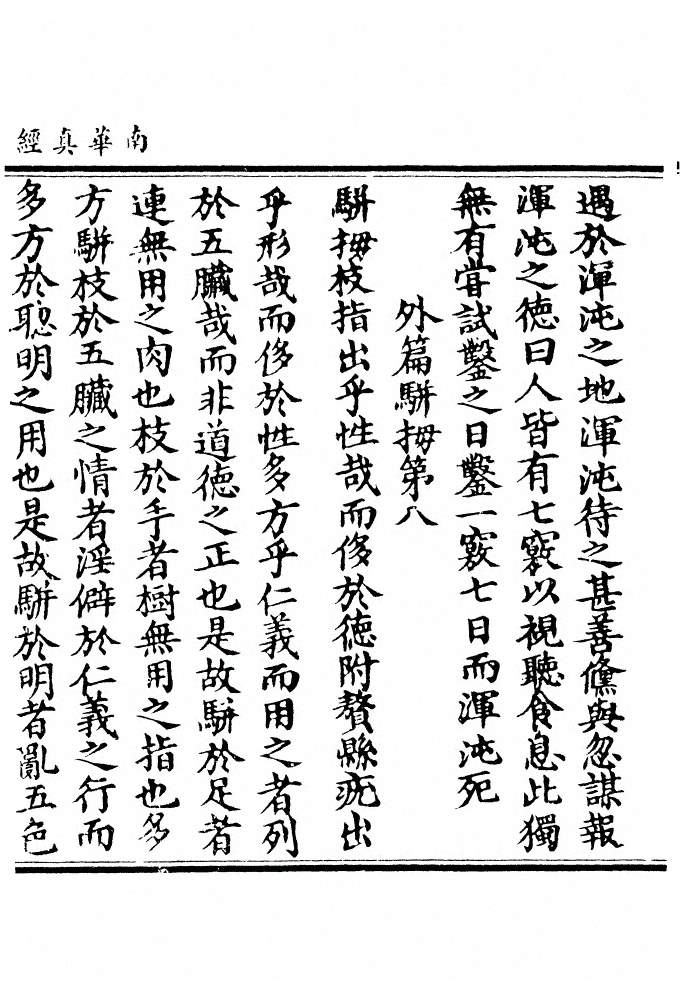 南華真經
遇於渾沌之地渾沌待之甚善儵與忽謀報
渾沌之德曰人皆有七竅以視聽食息此獨
無有嘗試鑿之日鑿一竅七日而渾沌死
外篇駢拇第八
駢拇枝指出乎性哉而侈於德附贅縣疣出
乎形哉而侈於性多方乎仁義而用之者列
於五臟哉而非道德之正也是故駢於足者
連無用之肉也枝於手者樹無用之指也多
方駢枝於五臟之情者淫僻於仁義之行而
多方於聰明之用也是故駢於明者亂五色